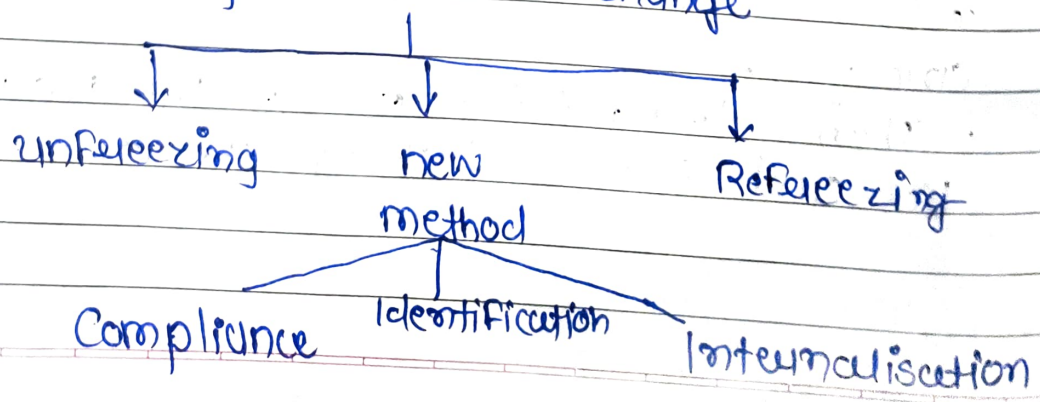 unfreezing new Refreezing
method
Compliance Identification Internalisation